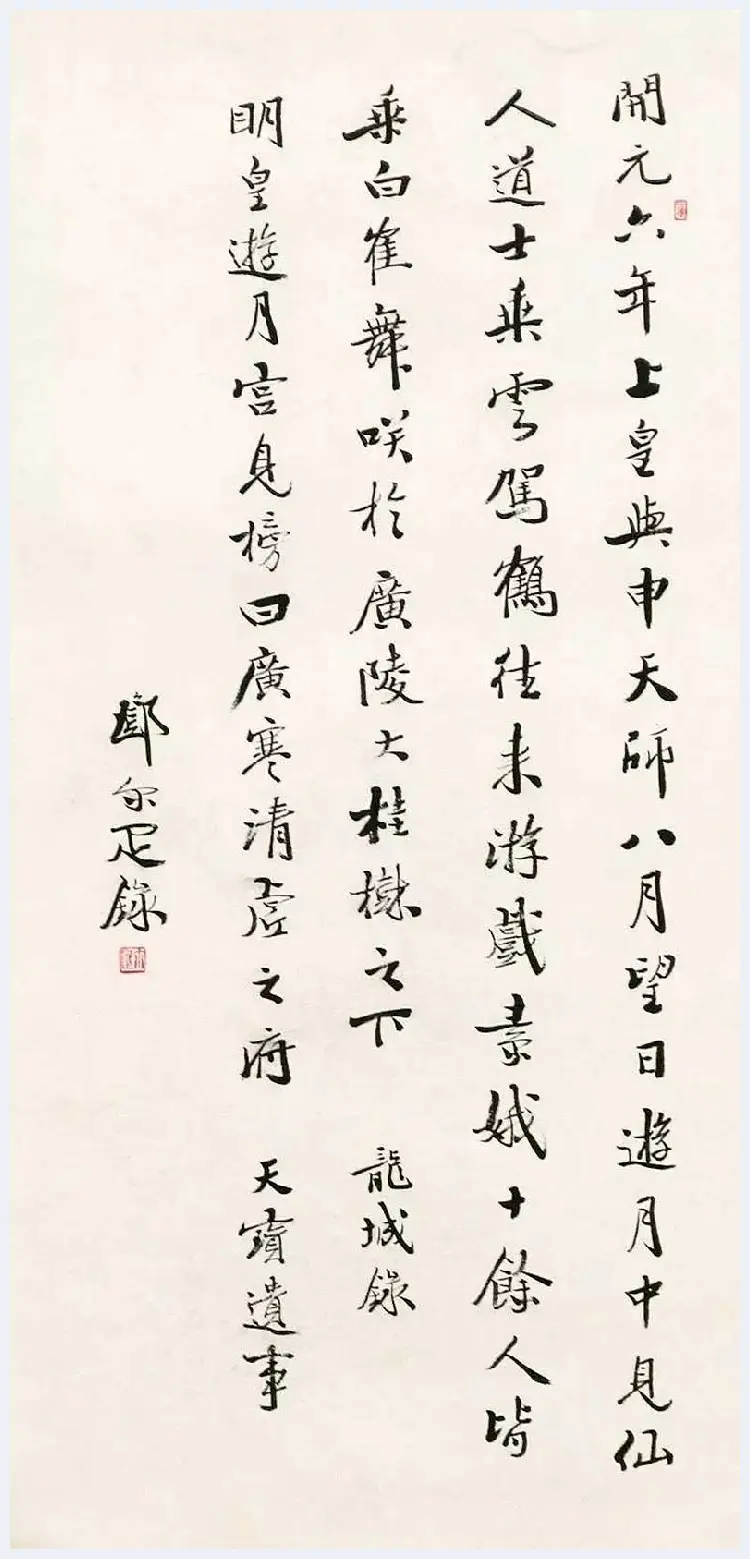 開元六年上皇與申天師八月望日遊月中見仙
人道士乘雲駕鶴往來游戲素娥十餘人皆
乘白隺舞咲於廣陵大桂樹之下 龍城錄
明皇遊月宮見榜曰廣寒清虛之府 天寶遺事
鄧尔疋錄